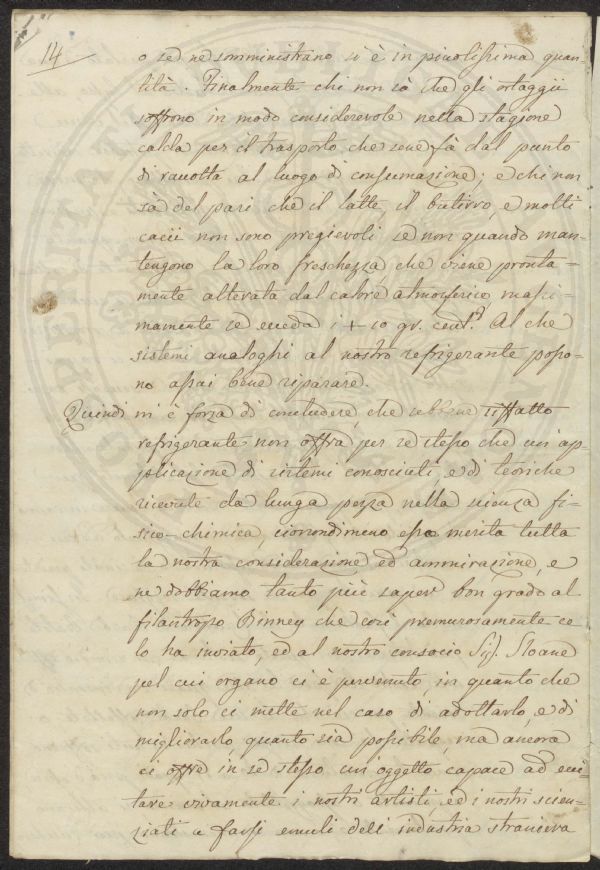 14
o se ne somministrano si è in piccolissima quan
tità. Finalmente chi non sà che gli ortaggii
soffrono in modo considerevole nella stagione
calda per il trasporto che sene fà dal punto
di raccolta al luogo di consumazione; e chi non
sà del pari che il latte, il butirro, e molti
cacii non sono pregievoli se non quando man-
tengono la loro freschezza che viene pronta=
mente alterata dal calore atmosferico massi=
mamente se ecceda i + 10 gr. cent.di Al che
sistemi analoghi al nostro refrigerante posso=
no assai bene riparare.
Quindi m'è forza di concludere, che sebbene siffatto
refrigerante non offra per se stesso che un'ap=
plicazione di sistemi conosciuti, e di teoriche
ricevute da lunga pezza nella scienza fi=
sico-chimica, ciònondimeno esso merita tutta
la nostra considerazione ed ammirazione, e
ne dobbiamo tanto più saper bon grado al
filantropo Binney che così premurosamente ce
lo ha inviato, ed al nostro consocio Sig. Sloane
pel cui organo ci è pervenuto, in quanto che
non solo ci mette nel caso di adottarlo, e di
migliorarlo, quanto sia possibile, ma ancora
ci offre in se stesso un'oggetto capace ad ecci
tare vivamente i nostri artisti ed i nostri scien=
ziati a farsi emuli dell'industria straniera